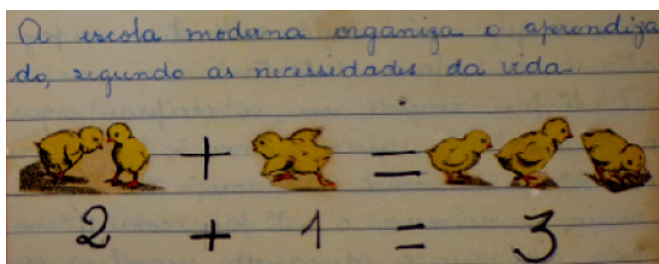 A escola moderna organiza o aprendiza
do, segundo as necessidades da vida.
+ =
2 + 1 = 3